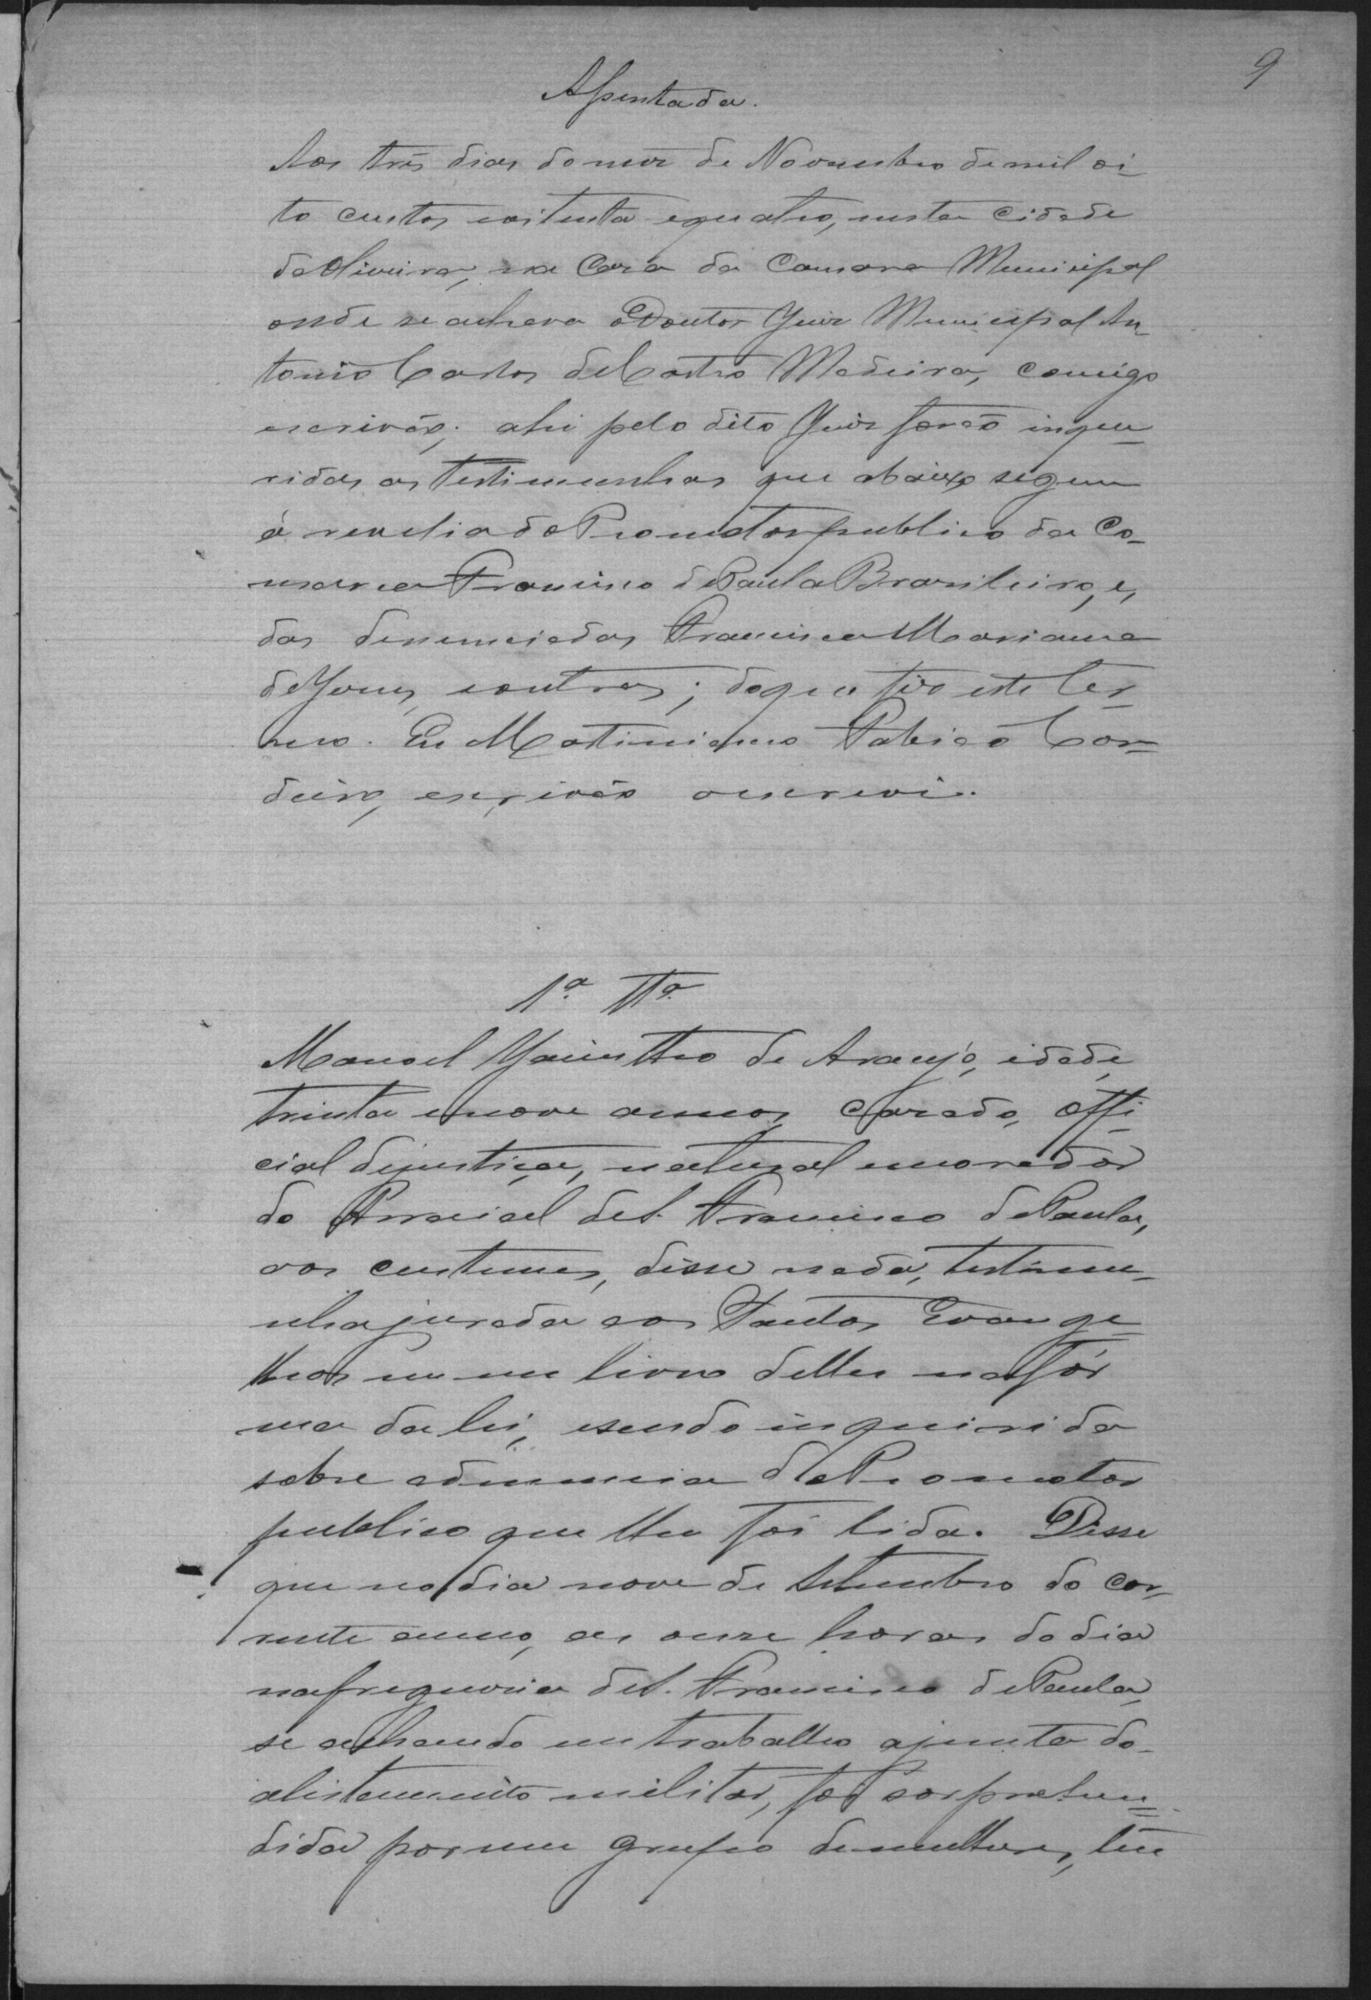 9
Assentada.
Aos três dias do mez de Novembro de mil oi-
to centos e oitenta e quatro, nesta cidade
de Oliveira, na Casa da Camara Municipal
onde se achava o Doutor Juiz Municipal An-
tonio Carlos de Castro Madeira, comigo
escrivão; ahi pelo dito Juiz forão inque-
ridas as testimunhas que abaixo seguem
á revelia do Promotor publico da Co-
marca Francisco de Paula Brasileiro, e,
dos denunciados Francisca Marianna
de Jesus, e outras; do que fiz este ter-
mo. Eu Cor-
deiro, escrivão o escrevi.
1ª Tta
Manoel Jacintho de Araujo, idade,
trinta e nove annos, casado, offi-
cial de justiça, natural e morador
do Arraial de S. Francisco de Paula,
aos custumes, disse nada, testimu-
nha jurada aos Santos Evange-
lhos em um livro delles na fór
ma da lei, e sendo inquirida
sobre a denuncia do Promotor
publico que lhe foi lida. Disse
que no dia nove de Setembro do cor-
rente anno, as onze horas do dia
na freguesia de S. Francisco de Paula,
se achando em trabalho a junta do
alistamento militar, foi sorprehen-
dida por um grupo de mulheres,